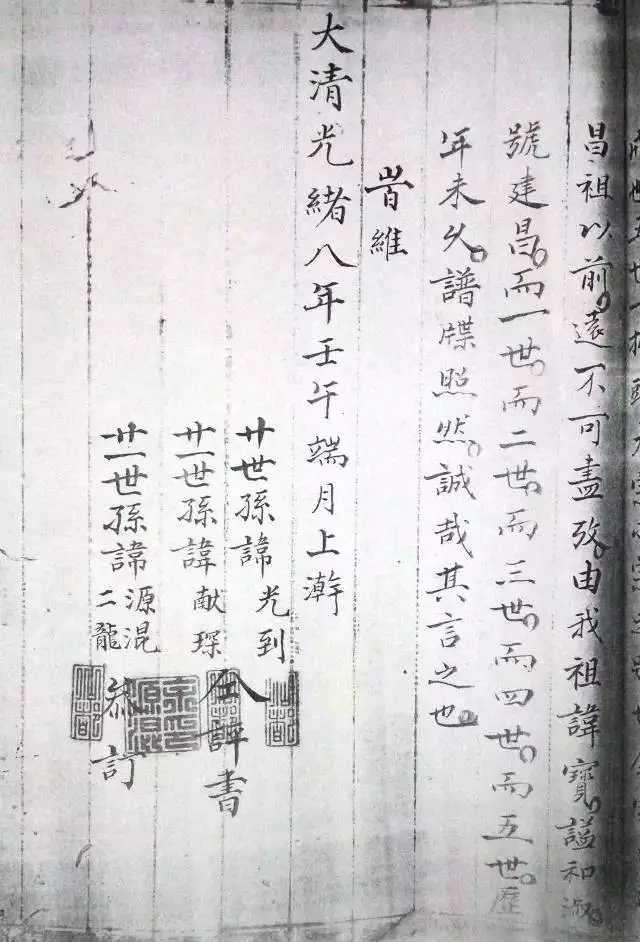 昌祖以前。遠不可盡攷。由我祖諱寶。謚和淑。
號建昌。而一世。而二世。而三世。而四世。而五世。歷
年未久。譜牒照然。誠哉其言之也。
旹維
大清光緒八年壬午端月上澣
廿世孫諱光到
廿一世孫諱献琛 仝諱書
廿一世孫諱源混二龍 訂